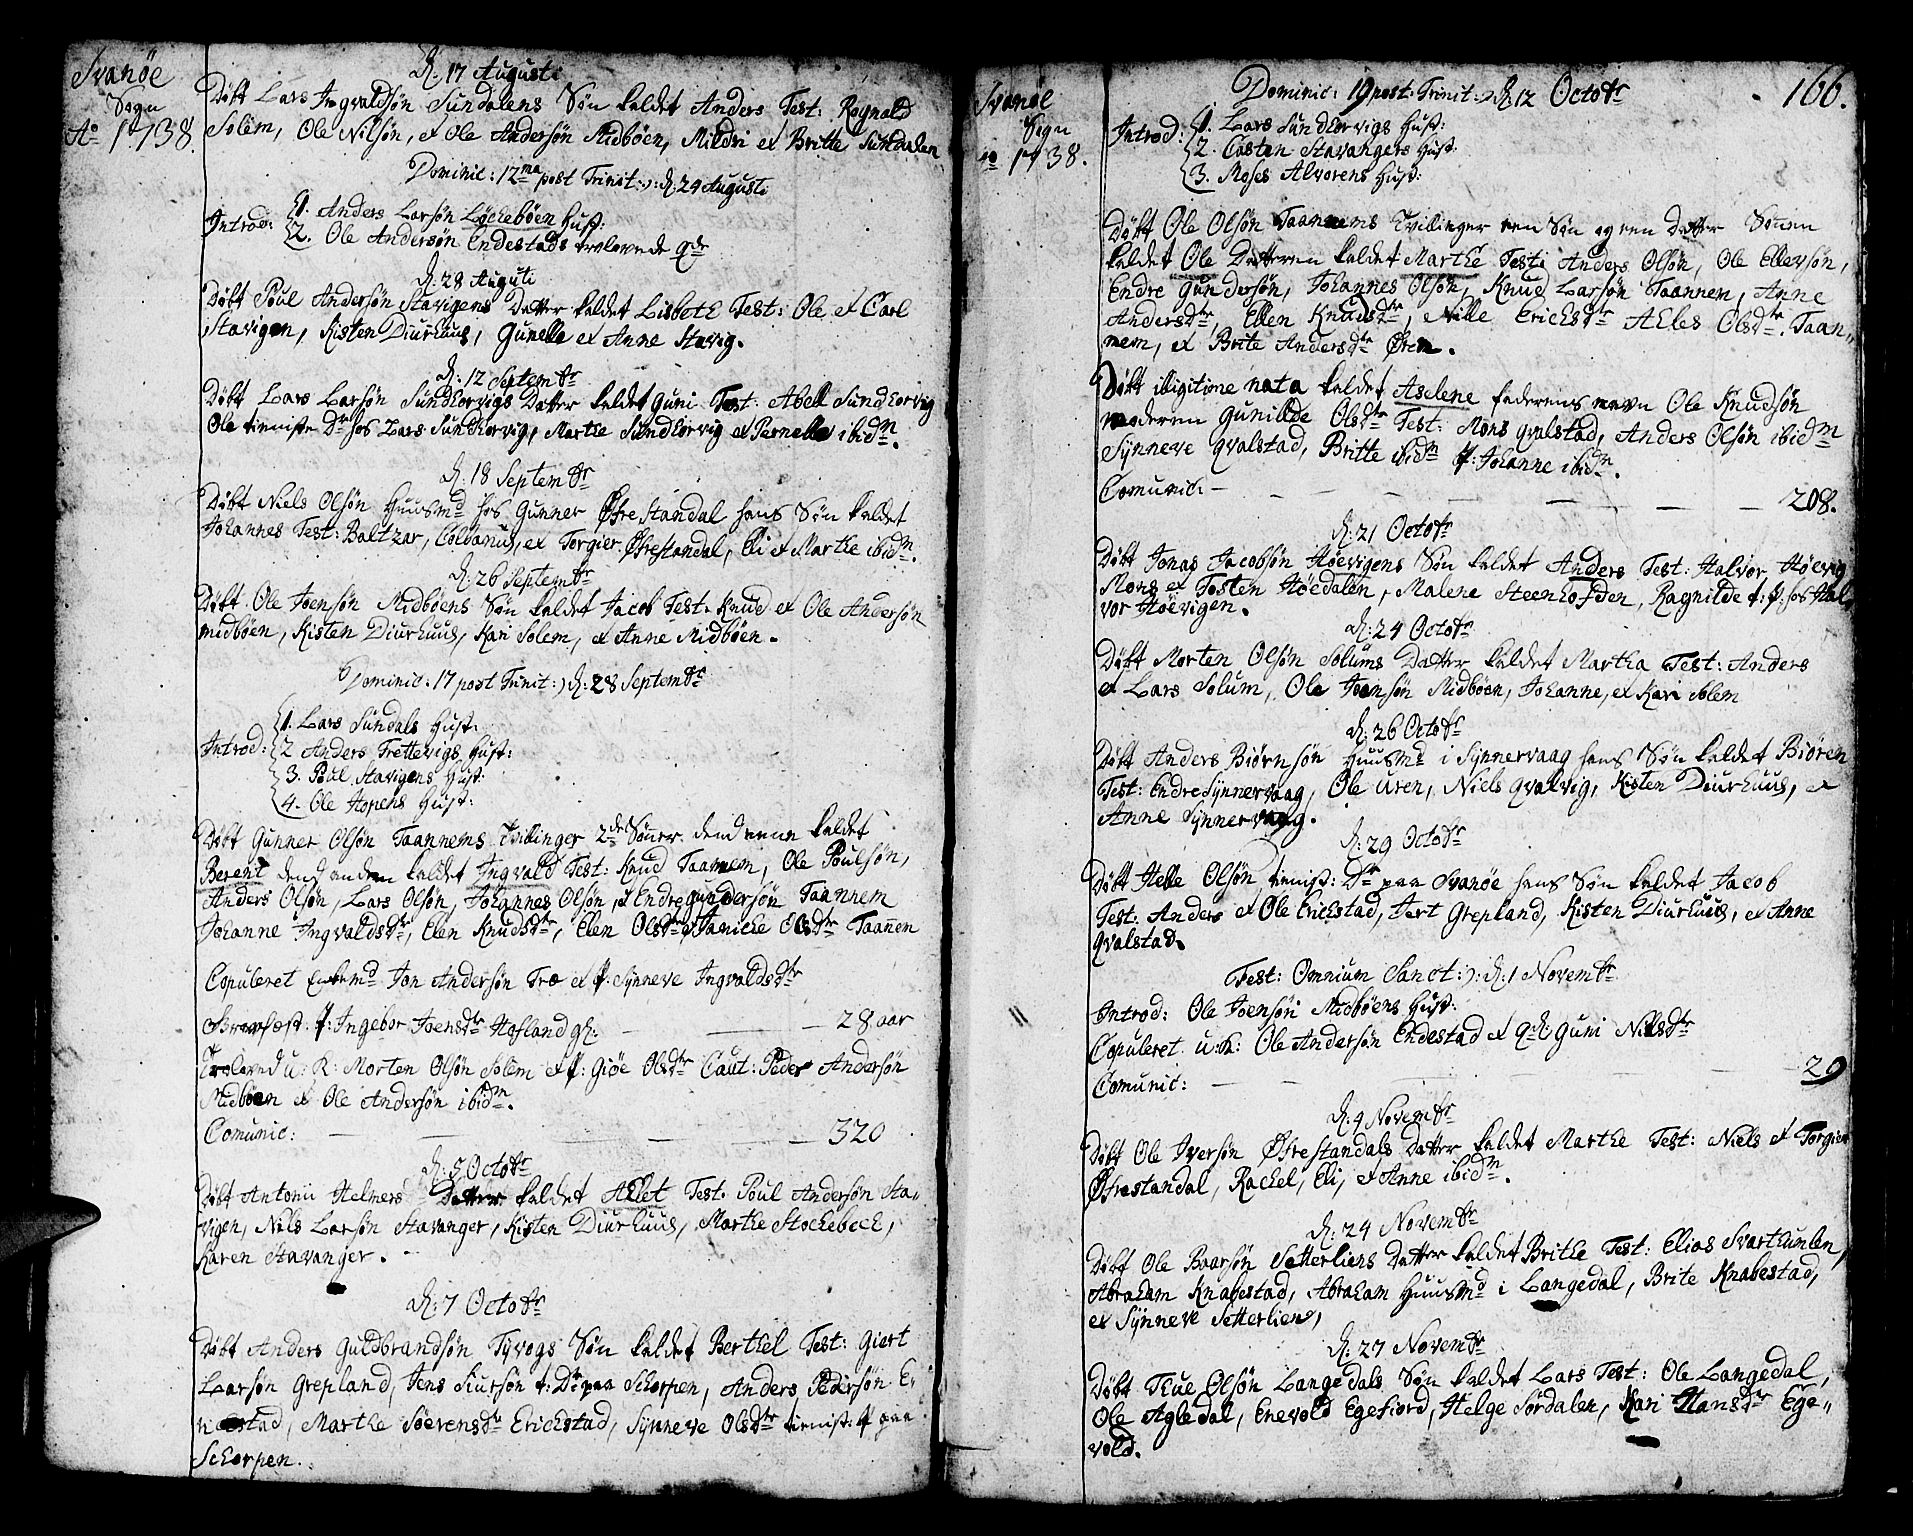 Svanöe
Sogn
Ao 1738
d: 17 Augusti
Döbt Lars Ingvaldsön Sundalens Sön kaldet Anders Test: Rognald
Solem, Ole Nilsön, et Ole Andersön Midböen, Mildri et Britte Sundalen
Dominic: 12ma post Trinit: ɔ: d: 24 Augusti
Introd: 1. Anders Larsön Löckeböen Hust:
2. Ole Andersön Endestads trolovede qde
d: 28 Augusti
Döbt Poul Andersön Stavigens Datter kaldet Lisbeth Test: Ole et Carl
Stavigen, Kisten Diurhuus, Gunelle et Anne Stavig.
d: 12 Septembr
Döbt Lars Larsön Sundhorvigs Datter kaldet Guni Test: Abell Sundhorvig
Ole tieniste Dr hos Lars Sundhorvig, Marthe Sundhorvig et Pernelle ibidm.
d: 18 Septembr
Döbt Niels Olsön Huusmd hos Gunner Öfrestandal hans Sön kaldet
Johannes Test: Baltzar, Coldanus, et Torgier Öfrestandal, Eli et Marthe ibidm.
d: 26 Septembr
Döbt Ole Joensön Midböens Sön kaldet Jacob Test: Knud et Ole Andersön
Midböen, Kisten Diurhuus, Kari Solem, et Anne Midböen.
Dominic: 17 post Trinit: ɔ: d: 28 Septembr
Introd: 1. Lars Sundals Hust:
2 Anders Frettevigs Hust:
3. Poul Stavigens Hust:
4. Ole Hopens Hust:
Döbt Gunner Olsön Taannems Tvillinger 2de Sönner dend eene kaldet
Berent dend anden kaldet Ingvald Test: Knud Taannem, Ole Poulsön,
Anders Olsön, Lars Olsön, Johannes Olsön, et Endre Gundersön Taannem
Johanne Ingvaldsdtr, Elen Knudsdtr, Elen Olsdtr, et Janiche Olsdtr Taannen
Copuleret Enkemd Jon Andersön Træ et P: Synneve Ingvaldsdtr
P: Ingebor Joensdtr Hofland — — 28 aar
Trolovd u: K: Morten Olsön Solem et P: Giöe Olsdtr Caut: Peder Andersön
Midböen et Ole Andersön ibidm.
Comunic: — — — — 320
d: 5 Octobr
Döbt Antonii Helmers Datter kaldet Alet Test: Poul Andersön Sta-
vigen, Nils Larsön Stavanger, Kisten Diurhuus, Marthe Stockebeck,
Karen Stavanger.
d: 7 Octobr
Döbt Anders Guldbrandsön Tyvogs Sön kaldet Berthel Test: Giert
Larsön Grepland, Jens Siursön t: Dr paa Schorpen, Anders Pedersön E-
richstad, Marthe Söerensdtr Erichstad, Synneve Olsdtr tienist: P paa
Schorpen.
Svanöe
Sogn
Ao 1738.
166.
Dominic: 19 post Trinit: ɔ: d: 12 Octobr
Introd: 1. Lars Sundhorvigs Hust:
2. Casten Stavangers Hust:
3. Moses Alvorens Hust:
Döbt Ole Olsön Taannems Tvillinger een Sön og een Datter Sönen
kaldet Ole Datteren kaldet Marthe Test: Anders Olsön, Ole Ellevsön,
Endre Gundersön, Johannes Olsön, Knud Larsön Taannen, Anne
Andersdtr, Ellen Knudsdtr, Nille Erichsdtr Ahles Olsdtr. Taan-
nem, et Brite Andersdtr Örem.
Döbt illigitime nata kaldet Aselene faderens navn Ole Knudsön
moderen Gunilde Olsdtr Test: Mons Qvalstad, Anders Olsön ibidm
Synneve Qvalstad, Britte ibidm P: Johanne ibidm.
Comunic: — — — — — 208.
d: 21 Octobr
Döbt Jonas Jacobsön Höevigens Sön kaldet Anders Test: Halvor Höevig
Mons et Tosten Höedalen, Malene Steenhofden, Ragnilde t: p: hos Hal
vor Höevigen.
d: 24 Octobr
Döbt Morten Olsön Solums Datter kaldet Martha Test: Anders
et Lars Solum, Ole Joensön Midböen, Johanne, et Kari Solem
d: 26 Octobr
Döbt Anders Biörnsön Huusmd i Synnervaag hans Sön kaldet Biören
Test: Endre Synnervaag, Ole Uren, Niels Qvalvig, Kisten Diurhuus, et
Anne Synnervaag.
d: 29 Octobr
Döbt Helle Olsön tienist: Dr paa Svanöe hans Sön kaldet Jacob
Test: Anders et Ole Erichstad, Jert Grepland, Kisten Diurhuus, et Anne
Qvalstad.
Fest: Omnium Sanct: ɔ: d: 1 Novembr
Introd: Ole Joensön Midböens Hust:
Copuleret u: K: Ole Andersön Endestad et qd: Guni Nilsdtr
Comunic: — — — — 29
d: 4 Novembr
Döbt Ole Iversön Öfrestandals Datter kaldet Marthe Test: Niels et Torgier
Öfrestandal, Rachel, Eli, et Anne ibidm.
d: 24 Novembr
Döbt Ole Baarsön Setterliens Datter kaldet Brithe Test: Elias Svarthumlen,
Abraham Knabestad, Abraham Huusmd i Langedal, Brite Knabestad,
et Synneve Setterlien,
d: 27 Novembr
Döbt Thue Olsön Langedals Sön kaldet Lars Test: Ole Langedal,
Ole Agledal, Enevold Egefiord, Helge Sördalen, Kari Hansdtr Ege-
vold.